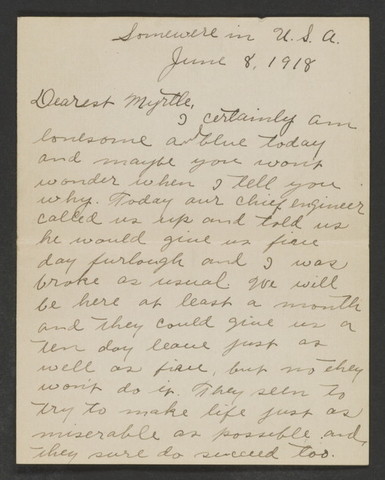 Somewere in U.S.A.
June 8, 1918
Dearest Myrtle,
I certainly am
lonesome a blue today
and maybe you wont
wonder when I tell you
why. Today our chief engineer
called us up and told us
he would give us five
day furlough and I was
broke as usual We will
be here at least a month
and they could give us a
ten day leave just as
well as five, but no they
won't do it. They seem to
try to make life just as
miserable as possible and
they sure do succeed too.